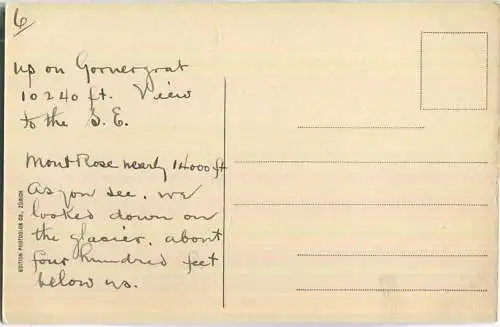 6
up on Gornergrat
10240 ft. View
to the S.E.
Mont Rose nearly 14000 ft
As you see, we
looked down on
the glacier, about
four hundred feet
below us.
EDITION PHOTOGLOB CO., ZÜRICH